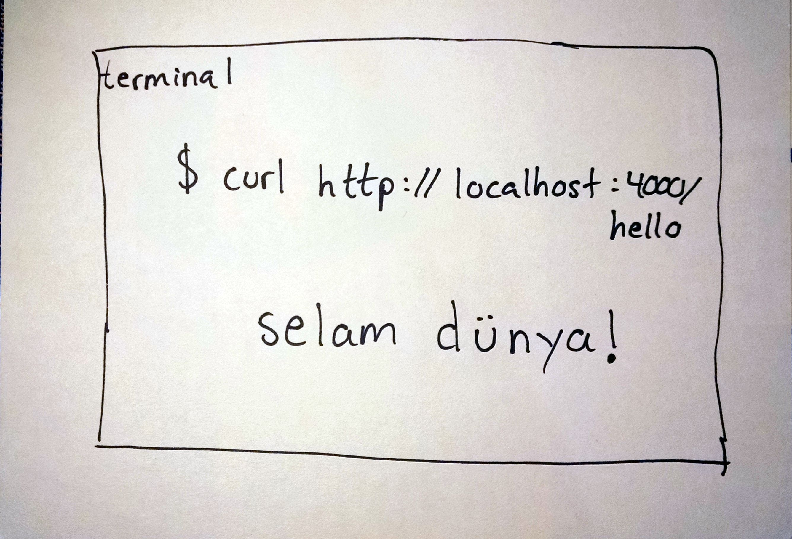 terminal
$ curl http://localhost:4000/
hello
selam dünya!